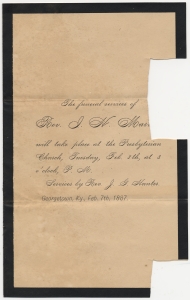 The funeral services of
Rev. J. H.
will take place at the Presbyterian
Church, Tuesday, Feb 8th, at 3
o'clock, P. M.
Services by Rev. J. G. Hunter.
Georgetown, Ky., Feb. 7th, 1887.